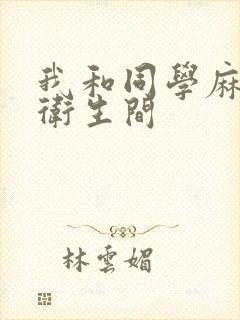 我和同學麻
衛生間
林雲媚